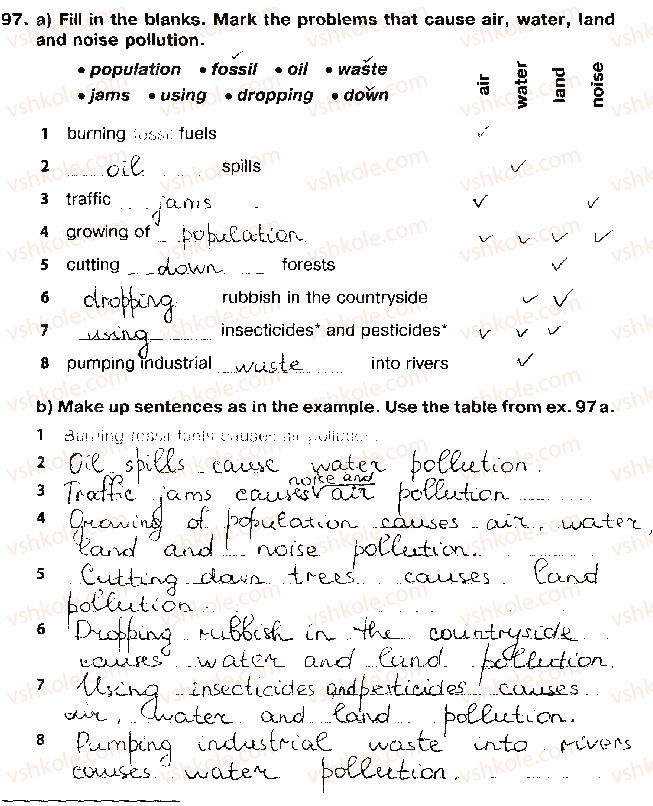 97. a) Fill in the blanks. Mark the problems that cause air, water, land
and noise pollution.
• population • fossil • oil • waste
• jams • using • dropping • down
air water land noise
1 burning fossil fuels
2 oil spills
3 traffic jams
4 growing of population
5 cutting down forests
6 dropping rubbish in the countryside
7 using insecticides* and pesticides*
8 pumping industrial waste into rivers
b) Make up sentences as in the example. Use the table from ex. 97a.
1 Burning fossil fuels causes air pollution.
2 Oil spills cause water pollution.
noise and
3 Traffic jams causes air pollution
4 Growing of population causes air, water,
land and noise pollution.
5 Cutting down trees causes land
pollution.
6 Dropping rubbish in the countryside
causes water and land pollution.
7 Using insecticides and pesticides causes
air, water and land pollution.
8 Pumping industrial waste into rivers
causes water pollution.
vshkole.com